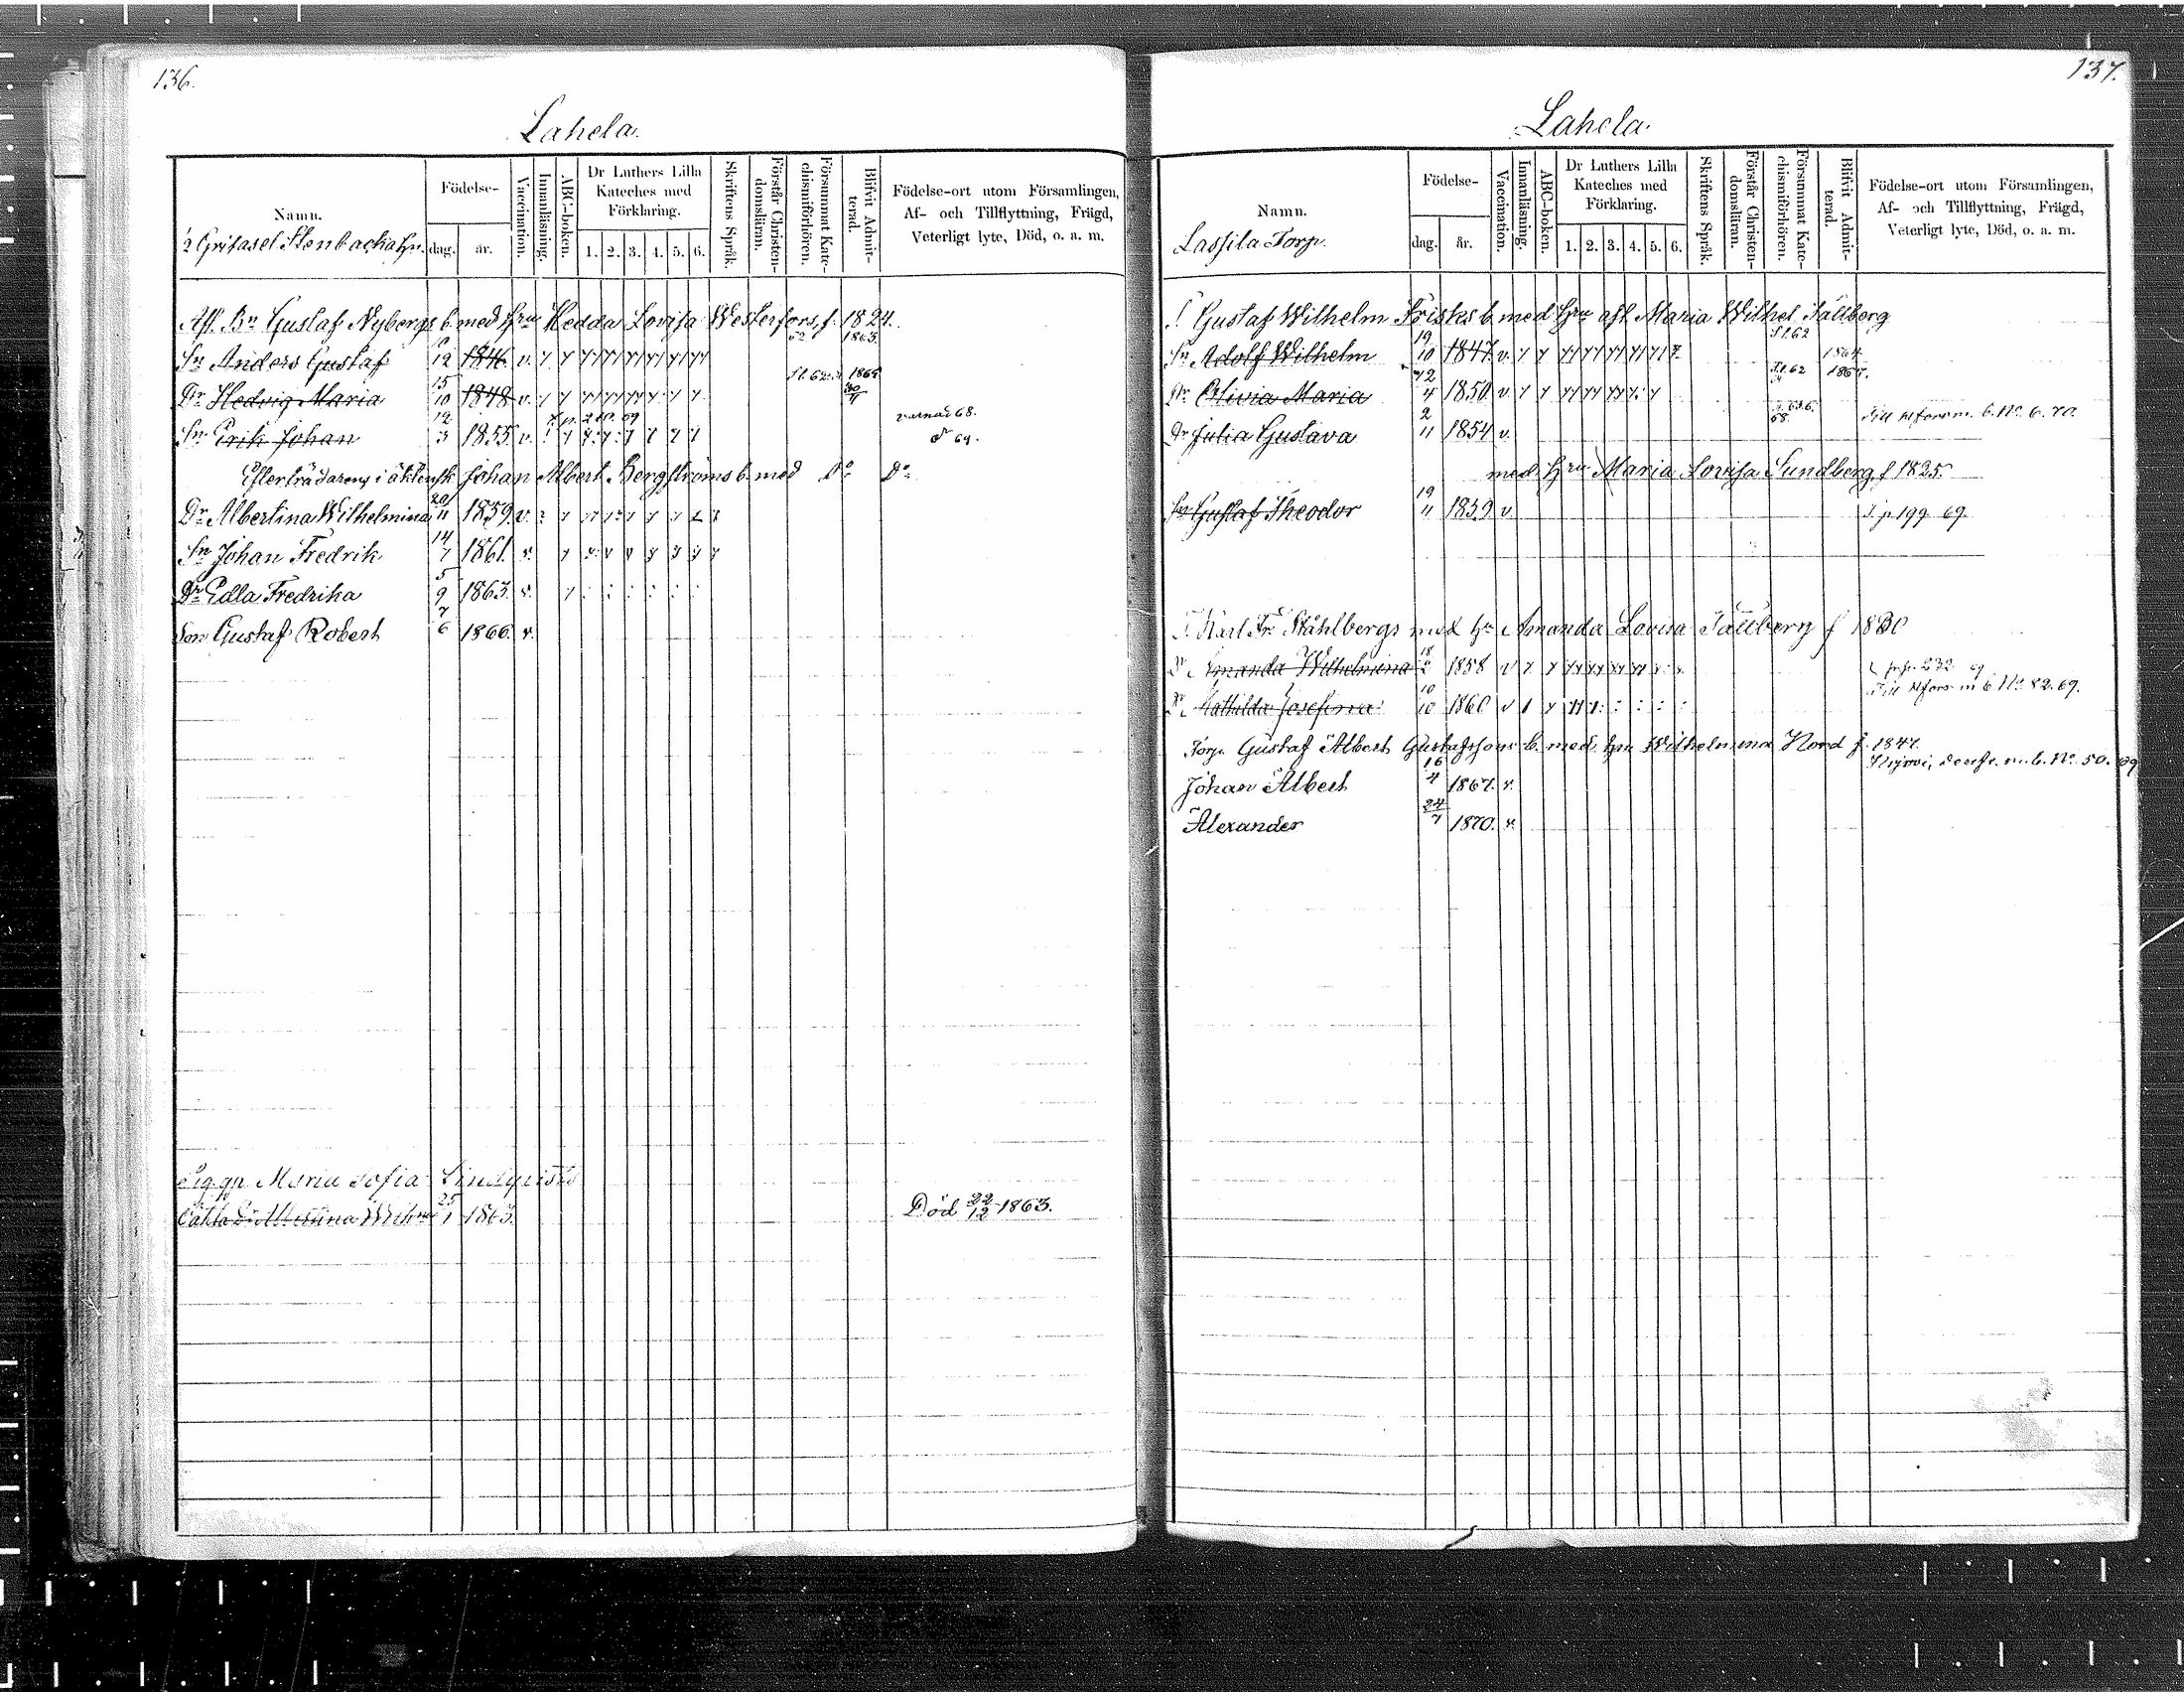 136.
Lahela.
Namn.
Födelse-
dag.
år.
Vaccination.
Innanläsning.
ABC-boken.
Dr Luthers Lilla Kateches med Förklaring.
1. 2. 3. 4. 5. 6.
Skriftens Språk.
Förstår Christen-domsläran.
Försummat Kate-chismiförhören.
Blifvit Admit-terad.
Födelse-ort utom Församlingen, Af- och Tillflyttning, Frägd, Veterligt lyte, Död, o. a. m.
Afl. Bn Gustaf Nybergs b. med Hru Hedda Lovisa Westerfors, f. 1824.
Sn Anders Gustaf 12 1846. v. 62 1863.
Dr Hedvig Maria 15/10 1848 v. 1864
Sn Erik Johan 12/3 1855. v. varnad 68.
d 69.
Efterträdarens i äktensk Johan Albert Bergströms b. med Do Do
Dr Albertina Wilhelmina 20/11 1859. v.
Sn Johan Fredrik 14/7 1861. v.
Dr Edla Fredrika 5/9 1863. v.
Son Gustaf Robert 7/6 1866. v.
Maria Sofia Lindqvists
25/1 1863. Död 22/12 1863.
137.
Lahela.
Namn.
Lassila Torp.
Födelse-
dag.
år.
Vaccination.
Innanläsning.
ABC-boken.
Dr Luthers Lilla Kateches med Förklaring.
1. 2. 3. 4. 5. 6.
Skriftens Språk.
Förstår Christen-domsläran.
Försummat Kate-chismiförhören.
Blifvit Admit-terad.
Födelse-ort utom Församlingen, Af- och Tillflyttning, Frägd, Veterligt lyte, Död, o. a. m.
T. Gustaf Wilhelm Frisks b. med Hru afl. Maria Wilhel. Tallberg
Sn Adolf Wilhelm 19/10 1847. v. 1864.
Dr Olivia Maria 12/4 1850. v.
Dr Julia Gustava 2/11 1854 v. Till Hfors m. b. No. 6. 70.
med Hru Maria Lovisa Sundberg, f 1825.
Sn Gustaf Theodor 19/11 1859 v T. p. 199. 69.
T. Karl Fr. Ståhlbergs med Hu Amanda Lovisa Tallberg f 1830
Dr Amanda Wilhelmina 18/2 1858 v p. 232. 69
Dr Mathilda Josefina 10/10 1860 v Till Hfors m b. No. 82. 69.
Torp. Gustaf Albert Gustafssons b. med hru Wilhelmina Nord f. 1847.
m. b. No. 50. 69
Johan Albert 16/4 1867. v.
Alexander 24/7 1870. v.